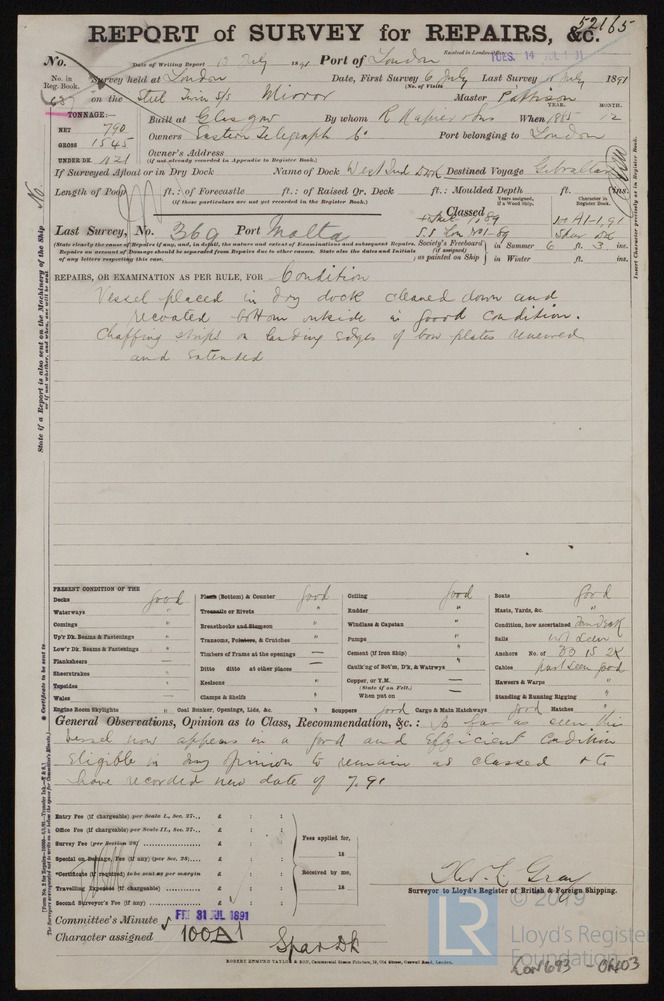 52165
REPORT of SURVEY for REPAIRS, &c.
Received in London
No. Date of Writing Report 13 July 1891 Port of London TUES. 14 JUL 1891
No. in Reg. Book. Survey held at London Date, First Survey 6 July Last Survey July 1891
(No. of Visits)
on the Steel Twin S/S Mirror Master Pattison
TONNAGE:— YEAR. MONTH.
NET 790 Built at Glasgow By whom R Napier & Sons When 1885 12
GROSS 1545 Owners Eastern Telegraph Co. Port belonging to London
UNDER DK. 421 Owner's Address
(if not already recorded in Appendix to Register Book.)
If Surveyed Afloat or in Dry Dock Name of Dock West Ind Dock Destined Voyage Gibraltar
Length of Poop ft.: of Forecastle ft.: of Raised Qr. Deck ft.: Moulded Depth ft. ins.
(If these particulars are not yet recorded in the Register Book.)
Years assigned, if a Wood Ship. Character in Register Book.
Classed
Last Survey, No. 369 Port Malta
(State clearly the cause of Repairs if any, and, in detail, the nature and extent of Examinations and subsequent Repairs.
Repairs on account of Damage should be separated from Repairs due to other causes. State also the dates and Initials
of any letters respecting this case.
Society's Freeboard (if assigned) as painted on Ship in Summer 6 ft. 3 ins.
in Winter ft. ins.
REPAIRS, OR EXAMINATION AS PER RULE, FOR Condition
Vessel placed in dry dock cleaned down and
recoated bottom outside in good condition.
Chaffing strips on landing edges of bow plates renewed
and extended
PRESENT CONDITION OF THE
Decks good
Waterways "
Comings "
Up'r Dk. Beams & Fastenings "
Low'r Dk. Beams & Fastenings "
Planksheers —
Sheerstrakes "
Topsides "
Wales —
Engine Room Skylights "
Plank (Bottom) & Counter good
Treenails or Rivets "
Breasthooks and Stemson "
Transoms, Pointers, & Crutches "
Timbers of Frame at the openings —
Ditto ditto at other places —
Keelsons "
Clamps & Shelfs —
Coal Bunker, Openings, Lids, &c. "
Ceiling good
Rudder "
Windlass & Capstan "
Pumps "
Cement (if Iron Ship) "
Caulk'ng of Bot'm, D'k, & Watrwys "
Copper, or Y.M. —
(State if on Felt.)
When put on —
Scuppers good Cargo & Main Hatchways good Hatches "
Boats good
Masts, Yards, &c. "
Condition, how ascertained From Deck
Sails not seen
Anchors No. of 3B 1S 2K
Cables part seen good
Hawsers & Warps "
Standing & Running Rigging "
General Observations, Opinion as to Class, Recommendation, &c.: As far as seen this
vessel now appears in a good and efficient condition
Eligible in my opinion to remain as classed & to
have recorded new date of 7.91
Entry Fee (if chargeable) per Scale I., Sec. 27... £ : :
Office Fee (if chargeable) per Scale II., Sec. 27... £ : :
Survey Fee (per Section 28) £ : :
Special or Damage, Fee (if any) (per Sec. 28) £ : :
*Certificate (if required) to be sent as per margin £ : :
Travelling Expenses (if chargeable) £ : :
Second Surveyor's Fee (if any) £ : :
Fees applied for,
18
Received by me,
18
Surveyor to Lloyd's Register of British & Foreign Shipping.
Committee's Minute FRI 31 JUL 1891
Character assigned 100A1
Spar Dk
ROBERT EDMUND TAYLOR & SON, Commercial Steam Printers, 19, Old Street, Goswell Road, London.
© 2019
LR
Lloyd's Register
Foundation
LON693-0403
State if a Report is also sent on the Machinery of the Ship No
Insert Character precisely as in Register Book.